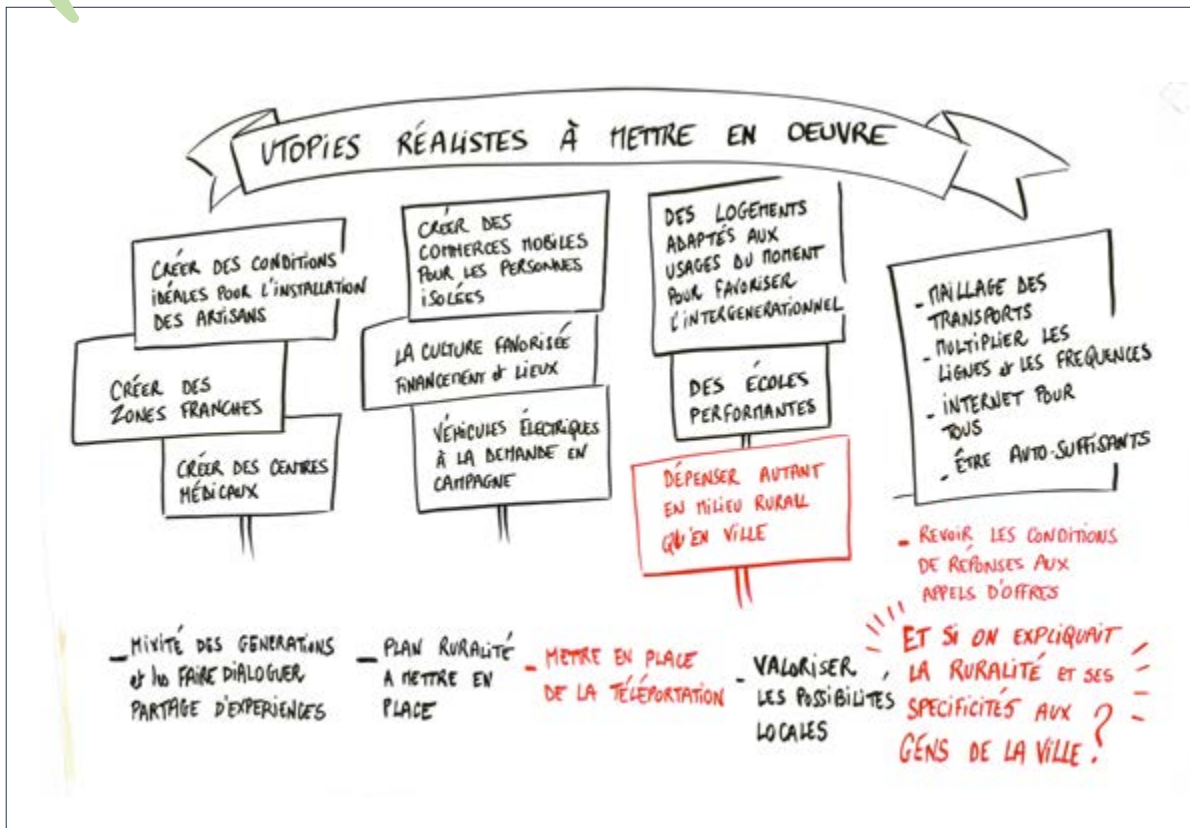 UTOPIES RÉALISTES À METTRE EN OEUVRE
CRÉER DES CONDITIONS
IDÉALES POUR L'INSTALLATION
DES ARTISANS
CRÉER DES
ZONES FRANCHES
CRÉER DES CENTRES
MÉDICAUX
CRÉER DES
COMMERCES MOBILES
POUR LES PERSONNES
ISOLÉES
LA CULTURE FAVORISÉE
FINANCEMENT et LIEUX
VÉHICULES ÉLECTRIQUES
À LA DEMANDE EN
CAMPAGNE
DES LOGEMENTS
ADAPTÉS AUX
USAGES DU MOMENT
POUR FAVORISER
L'INTERGENERATIONNEL
DES ÉCOLES
PERFORMANTES
DÉPENSER AUTANT
EN MILIEU RURALL
QU'EN VILLE
- MAILLAGE DES
TRANSPORTS
- MULTIPLIER LES
LIGNES et LES FREQUENCES
- INTERNET POUR
TOUS
- ÊTRE AUTO-SUFFISANTS
- REVOIR LES CONDITIONS
DE RÉPONSES AUX
APPELS D'OFFRES
- MIXITÉ DES GENERATIONS
et les FAIRE DIALOGUER
PARTAGE D'EXPERIENCES
- PLAN RURALITÉ
A METTRE EN
PLACE
- METTRE EN PLACE
DE LA TÉLÉPORTATION
- VALORISER
LES POSSIBILITÉS
LOCALES
ET SI ON EXPLIQUAIT
LA RURALITÉ ET SES
SPECIFICITÉS AUX
GENS DE LA VILLE ?